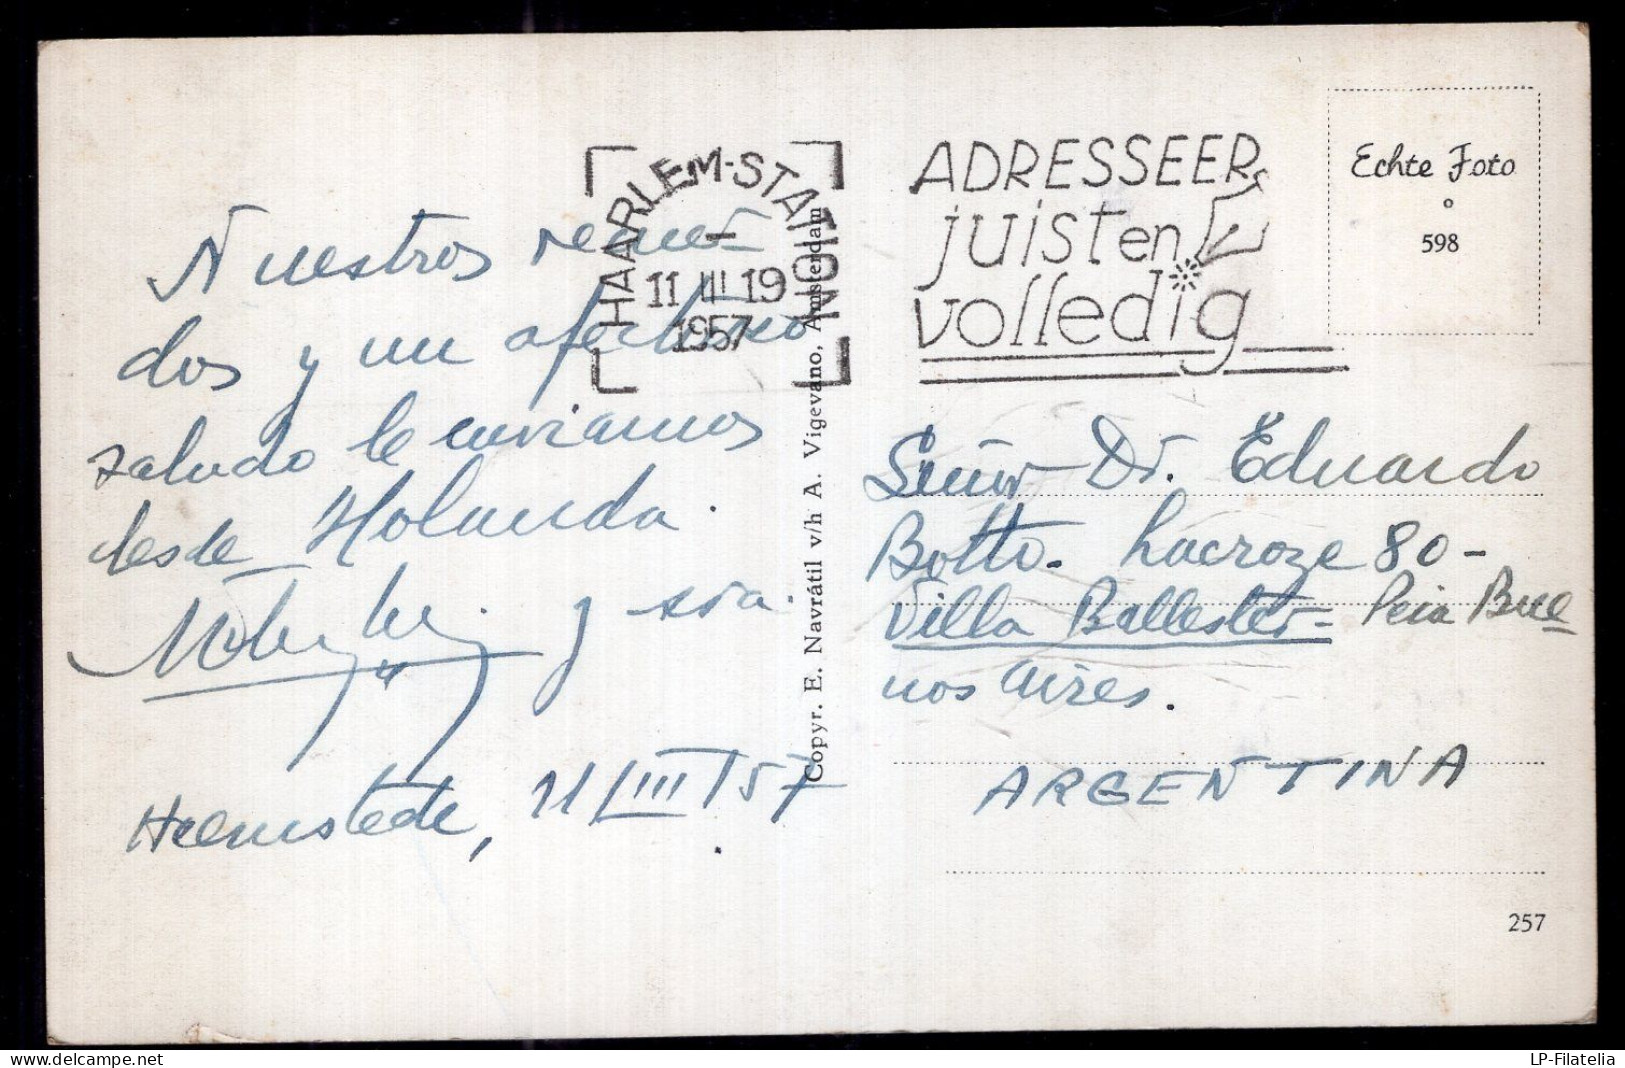 Nuestros recuer-
dos y un afectuoso
saludo le enviamos
desde Holanda.
y sra.
Heemstede, 11/III/57
HAARLEM-STATION
11 III 19
1957
ADRESSEER
juist en
volledig
Echte Foto
598
Copyr. E. Navrátil v/h A. Vigevano, Amsterdam
Señor Dr. Eduardo
Botto. Lacroze 80-
Villa Ballester- Pcia Bue
nos Aires.
ARGENTINA
257
LP-Filatelia